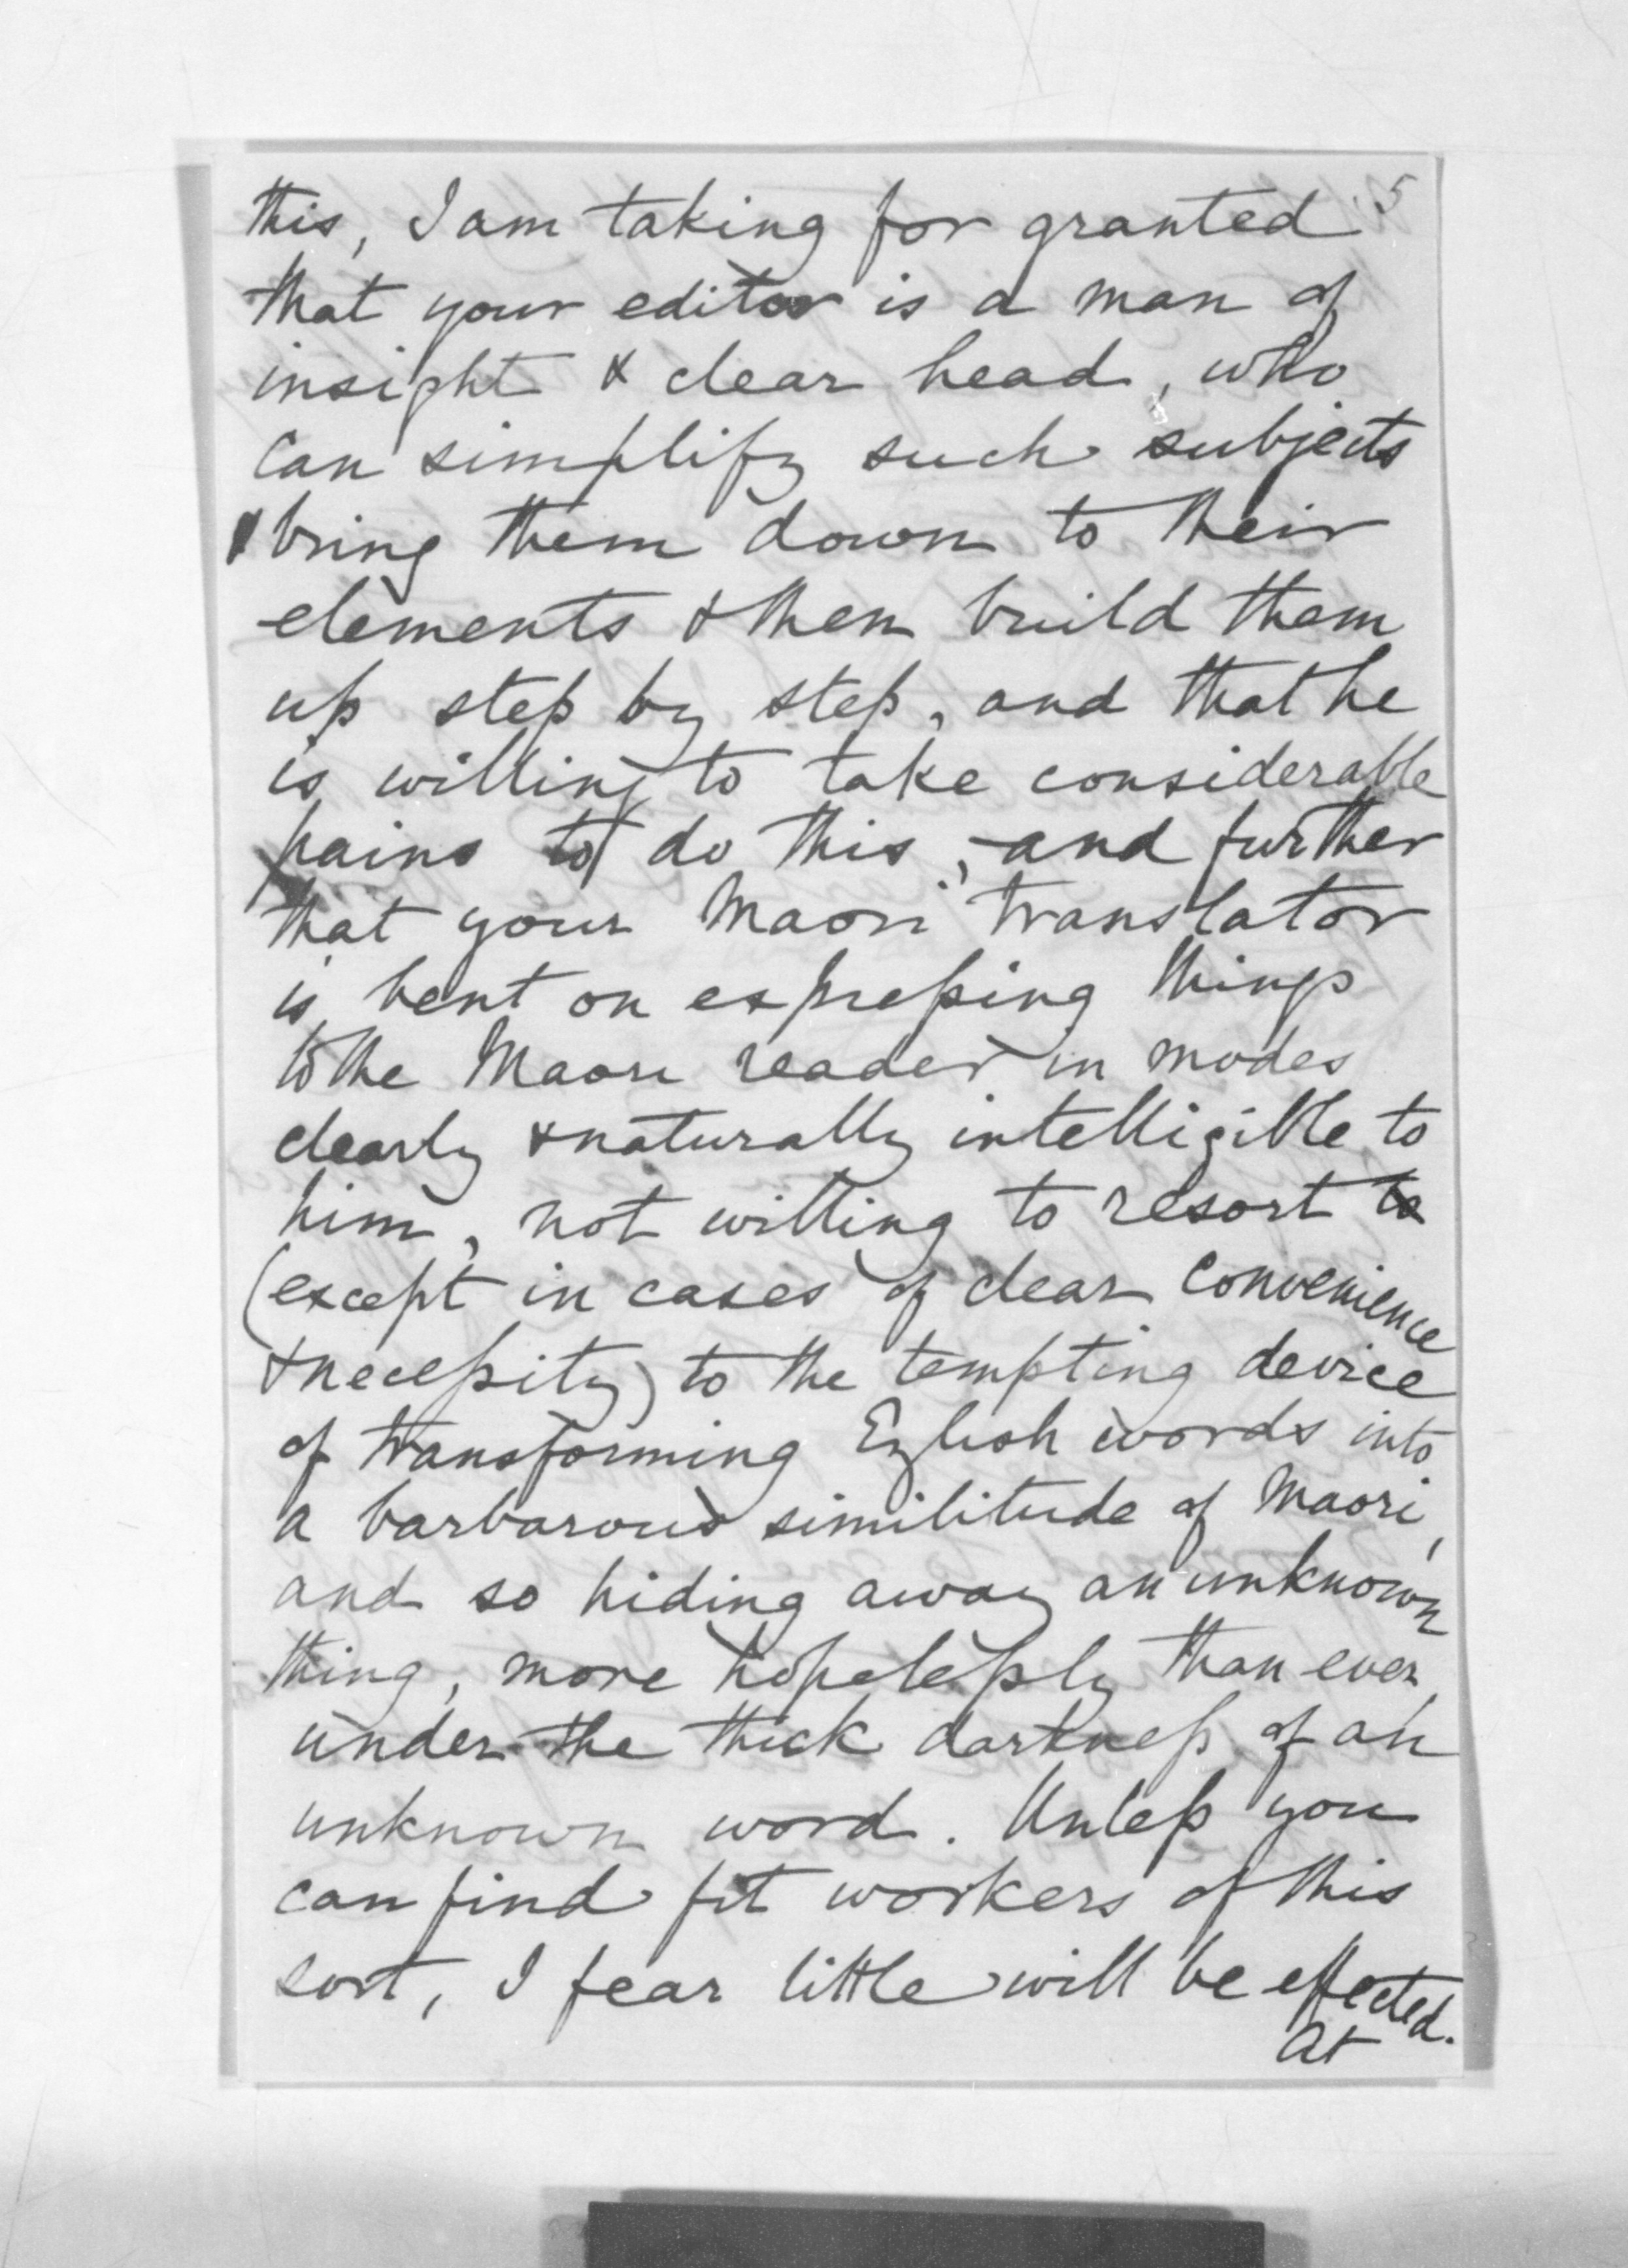 5
this, I am taking for granted
that your editor is a man of
insight & clear head, who
can simplify such subjects
& bring them down to their
elements & then build them
up step by step, and that he
is willing to take considerable
pains to do this, and further
that your Maori translator
is bent on expressing things
to the Maori reader in modes
clearly & naturally intelligible to
him, not willing to resort to
(except in cases of clear convenience
& necessity) to the tempting device
of transforming English words into
a barbarous similitude of Maori,
and so hiding away an unknown
thing, more hopelessly than ever,
under the thick darkness of an
unknown word. Unless you
can find fit workers of this
sort, I fear little will be effected.
At